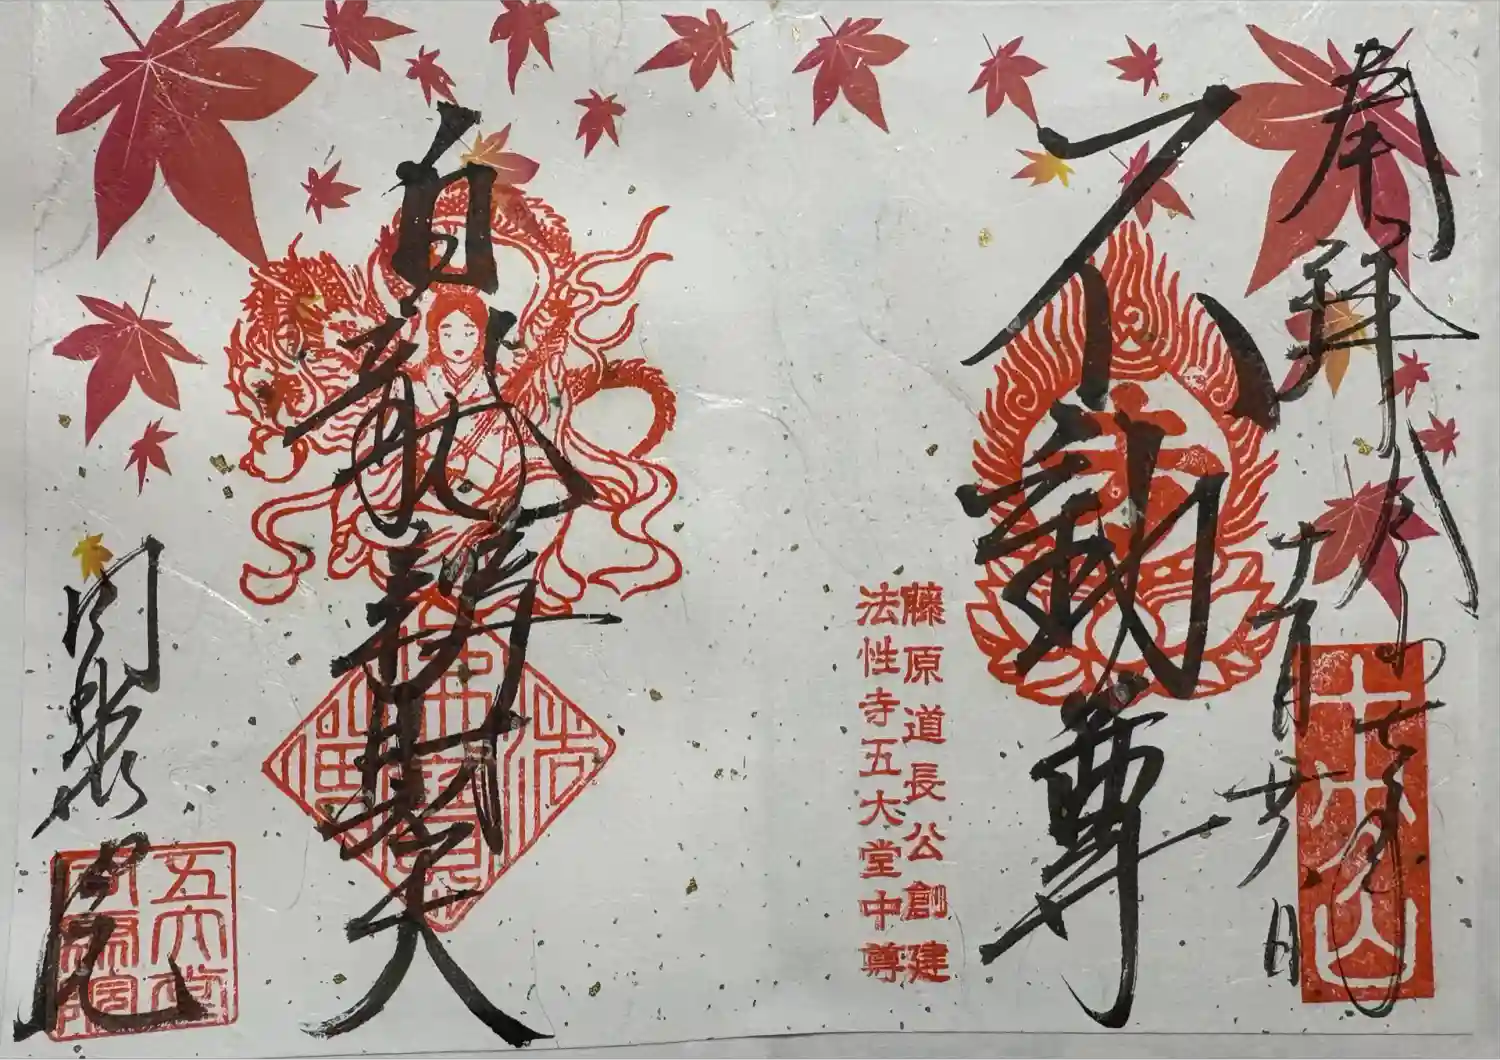 奉拝
令和七年
十一月
不動尊
藤原道長公創建
法性寺五大堂中尊
白龍辨財天
同聚院
五大堂
同聚院